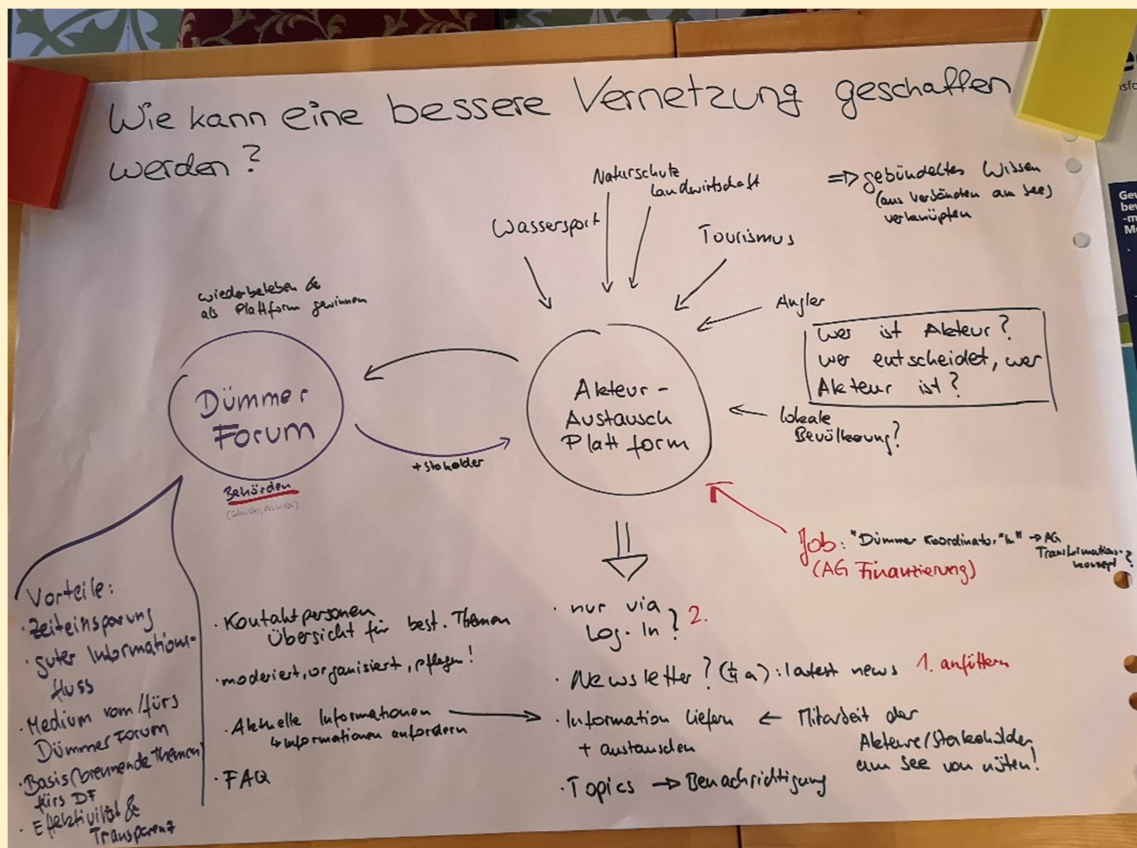 Wie kann eine bessere Vernetzung geschaffen
werden?
Naturschutz
Landwirtschaft
Wassersport
Tourismus
Angler
lokale
Bevölkerung?
=> gebündeltes Wissen
(aus Verbänden am See)
verknüpfen
Wer ist Akteur?
wer entscheidet, wer
Akteur ist?
wiederbeleben &
als Plattform gewinnen
Dümmer
Forum
Behörden
+ Stakolder
Akteur-
Austausch
Plattform
Job: "Dümmer Koordinator*In" → AG
Transformations-
konzept?
(AG Finanzierung)
Vorteile:
· Zeiteinsparung
· guter Informations-
fluss
· Medium vom/fürs
Dümmer Forum
· Basis (brennende Themen)
fürs DF
· Effektivität &
Transparenz
· Kontaktpersonen
Übersicht für best. Themen
· moderiert, organisiert, pflegen!
· Aktuelle Informationen
↳ Informationen anfordern
· FAQ
· nur via
Log-In? 2.
· Newsletter? (¼ a): latest news 1. anfüttern
· Information liefern ← Mitarbeit der
+ austauschen
Akteure/Stakeholder
am See von nöten!
· Topics → Benachrichtigung